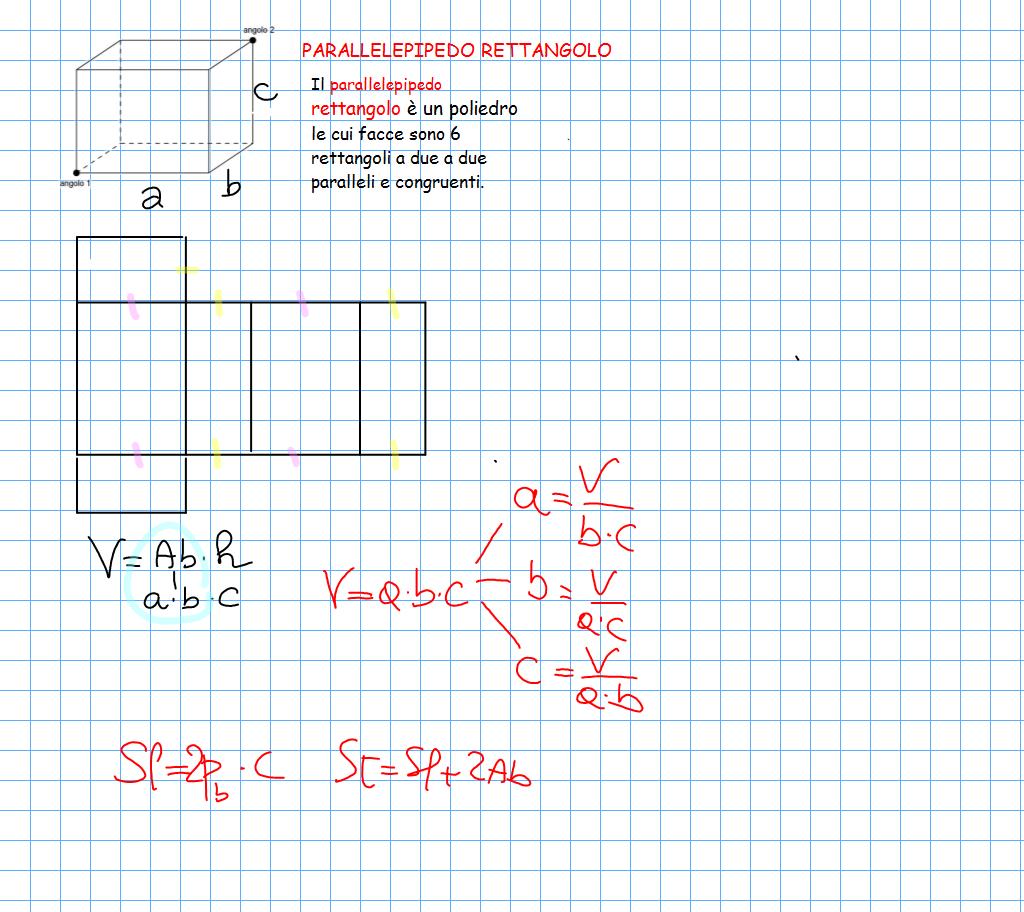 angolo 2
PARALLELEPIPEDO RETTANGOLO
c
Il parallelepipedo
rettangolo è un poliedro
le cui facce sono 6
rettangoli a due a due
paralleli e congruenti.
angolo 1
a
b
V = Ab · h
a · b · c
V = a · b · c
a = V / b · c
b = V / a · c
c = V / a · b
Sl = 2pb · c
St = Sl + 2Ab